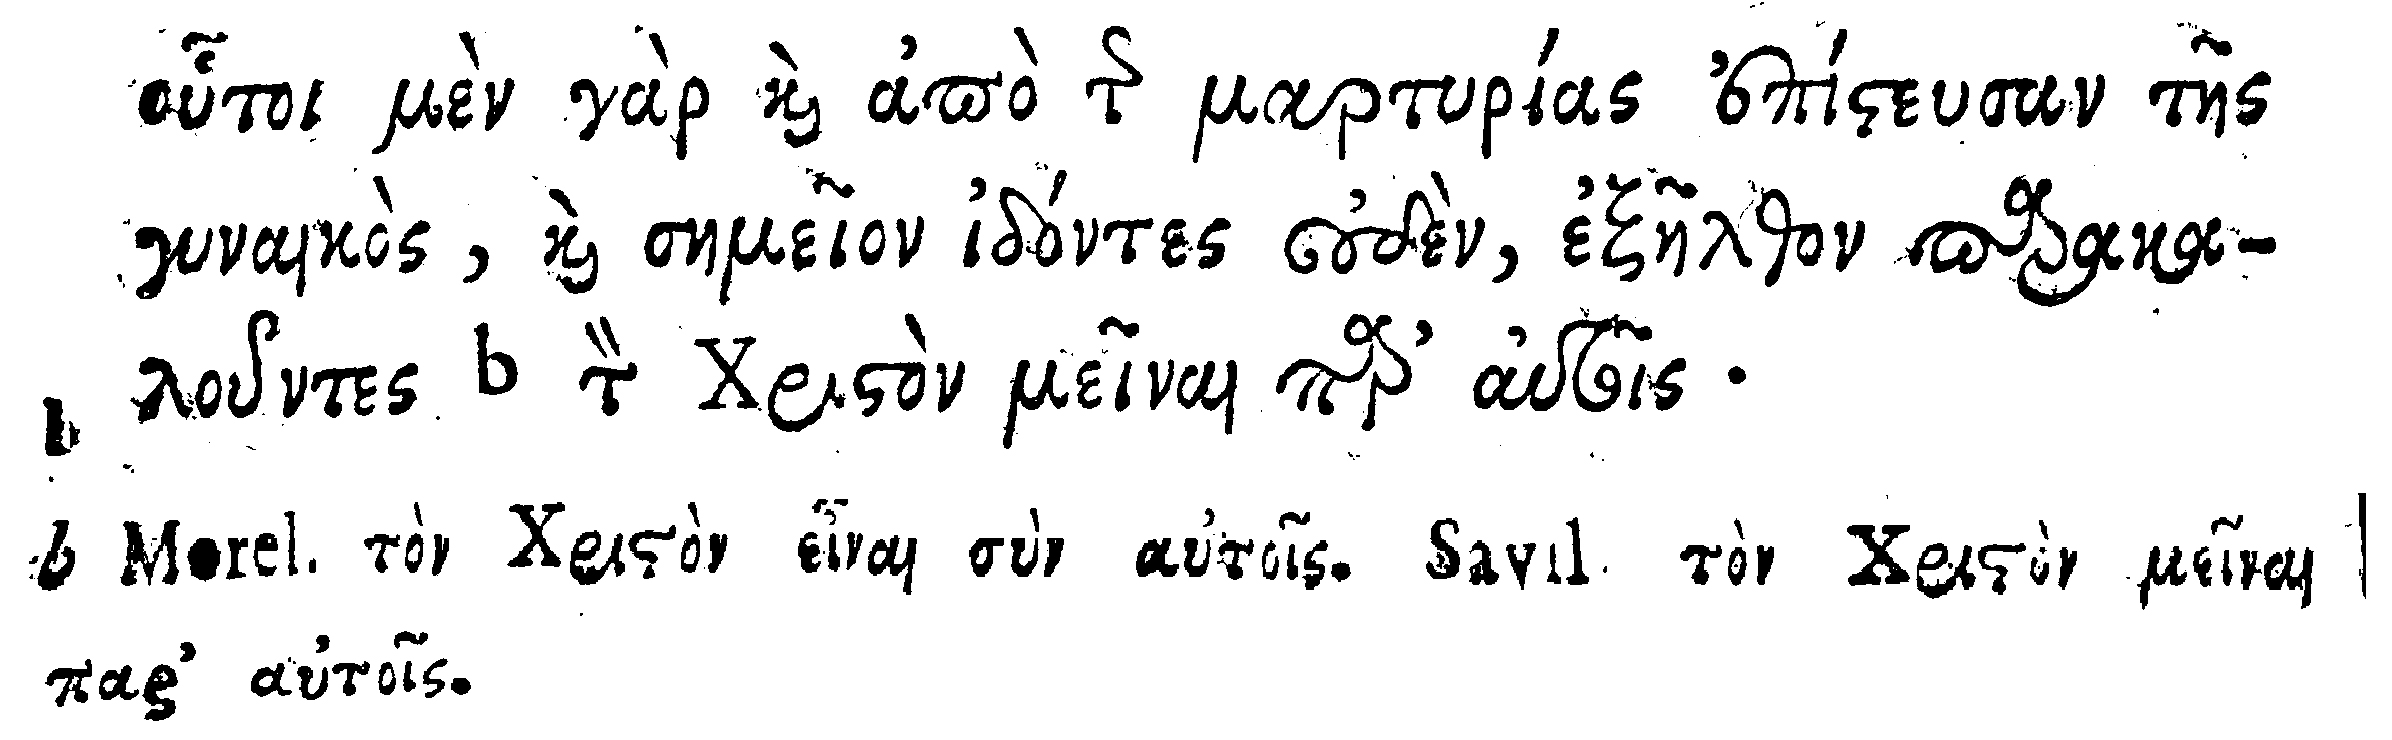 οὗτοι μὲν γὰρ καὶ ἀπὸ τῆς μαρτυρίας ἐπίστευσαν τῆς
γυναικὸς, καὶ σημεῖον ἰδόντες οὐδὲν, ἐξῆλθον παρακα-
λοῦντες b τὸν Χριστὸν μεῖναι παρ’ αὐτοῖς.
b
b Morel. τὸν Χριστὸν εἶναι σὺν αὐτοῖς. Savil. τὸν Χριστὸν μεῖναι
παρ’ αὐτοῖς.